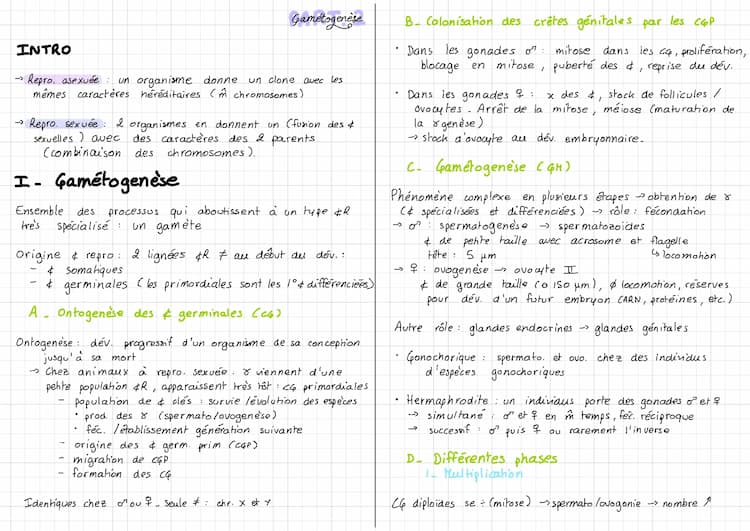 Gamétogenèse
INTRO
→ Repro. asexuée : un organisme donne un clone avec les
mêmes caractères héréditaires (m̂ chromosomes)
→ Repro. sexuée : 2 organismes en donnent un (fusion des ¢
sexuelles) avec des caractères des 2 parents
(combinaison des chromosomes).
I - Gamétogenèse
Ensemble des processus qui aboutissent à un type ¢R
très spécialisé : un gamète
Origine ¢ repro : 2 lignées ¢R ≠ au début du dév. :
- ¢ somatiques
- ¢ germinales (les primordiales sont les 1° ¢ différenciées)
A - Ontogenèse des ¢ germinales (CG)
Ontogenèse : dév. progressif d'un organisme de sa conception
jusqu'à sa mort
→ Chez animaux à repro. sexuée : ɤ viennent d'une
petite population ¢R, apparaissent très tôt : CG primordiales
- population de ¢ clés : survie/évolution des espèces
• prod. des ɤ (spermato/ovogenèse)
• féc. /établissement génération suivante
- origine des ¢ germ. prim (CGP)
- migration de CGP
- formation des CG
Identiques chez ♂ ou ♀ - seule ≠ : chr. X et Y
B - Colonisation des crêtes génitales par les CGP
• Dans les gonades ♂ : mitose dans les CG, prolifération,
blocage en mitose, puberté des ¢, reprise du dév.
• Dans les gonades ♀ : x des ¢, stock de follicules /
ovocytes - Arrêt de la mitose, méiose (maturation de
la ɤgenèse)
→ stock d'ovocyte au dév. embryonnaire.
C - Gamétogenèse (GM)
Phénomène complexe en plusieurs étapes → obtention de ɤ
(¢ spécialisées et différenciées) → rôle : fécondation
→ ♂ : spermatogenèse → spermatozoïdes
¢ de petite taille avec acrosome et flagelle
tête : 5 µm ↳ locomotion
→ ♀ : ovogenèse → ovocyte II
¢ de grande taille (0 150 µm), ∅ locomotion, réserves
pour dév. d'un futur embryon (ARN, protéines, etc.)
Autre rôle : glandes endocrines → glandes génitales
• Gonochorique : spermato. et ovo. chez des individus
d'espèces gonochoriques
• Hermaphrodite : un individus porte des gonades ♂ et ♀
→ simultané : ♂ et ♀ en m̂ temps, féc. réciproque
→ successif : ♂ puis ♀ ou rarement l'inverse
D - Différentes phases
1 - Multiplication
CG diploïdes se ÷ (mitose) → spermato/ovogonie → nombre ↗